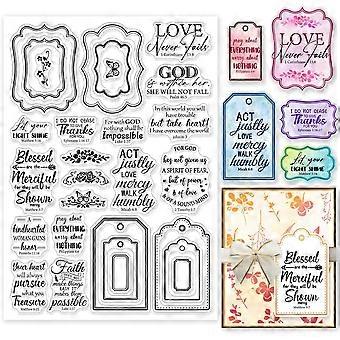 LOVE
Never Fails
1 Corinthians 13:8
GOD
is within her,
SHE WILL NOT FALL
Psalm 46:5
Let your
LIGHT SHINE
Matthew 5:16
I DO NOT CEASE
to Give
Thanks
FOR YOU
Ephesians 1:16
With GOD
nothing shall be
Impossible
Luke 1:37
In this world you will
have trouble
but take heart! I
have overcome the world
Blessed
are the
Merciful
for they will be
Shown
mercy
pray about
EVERYTHING
worry about
NOTHING
ACT
justly
LOVE
mercy
WALK
humbly
Micah 6:8
FOR GOD
hay not given us
A SPIRIT OF FEAR,
but of power
& of love
& OF A SOUND MIND
2 Timothy 1:7
A
kindhearted
WOMAN GAINS
honor
Proverbs 11:16
pray about
EVERYTHING
worry about
NOTHING
Your heart
will always
pursue
what you
Treasure
Faith
makes things
possible
pray about
EVERYTHING
worry about
NOTHING
LOVE
Never Fails
1 Corinthians 13:8
ACT
justly
LOVE
mercy
WALK
humbly
Micah 6:8
I DO NOT CEASE
to Give
Thanks
FOR YOU
Let your
LIGHT SHINE
Blessed
are the
Merciful
for they will be
Shown
mercy